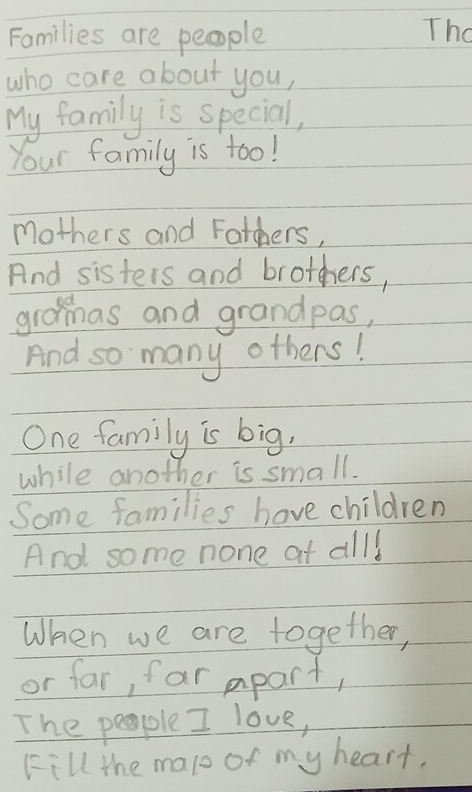 Families are people
who care about you,
My family is special,
Your family is too!
Mothers and Fathers,
And sisters and brothers,
grandmas and grandpas,
And so many others!
One family is big,
while another is small.
Some families have children
And some none at all!
When we are together,
or far, far apart,
The people I love,
Fill the map of my heart.